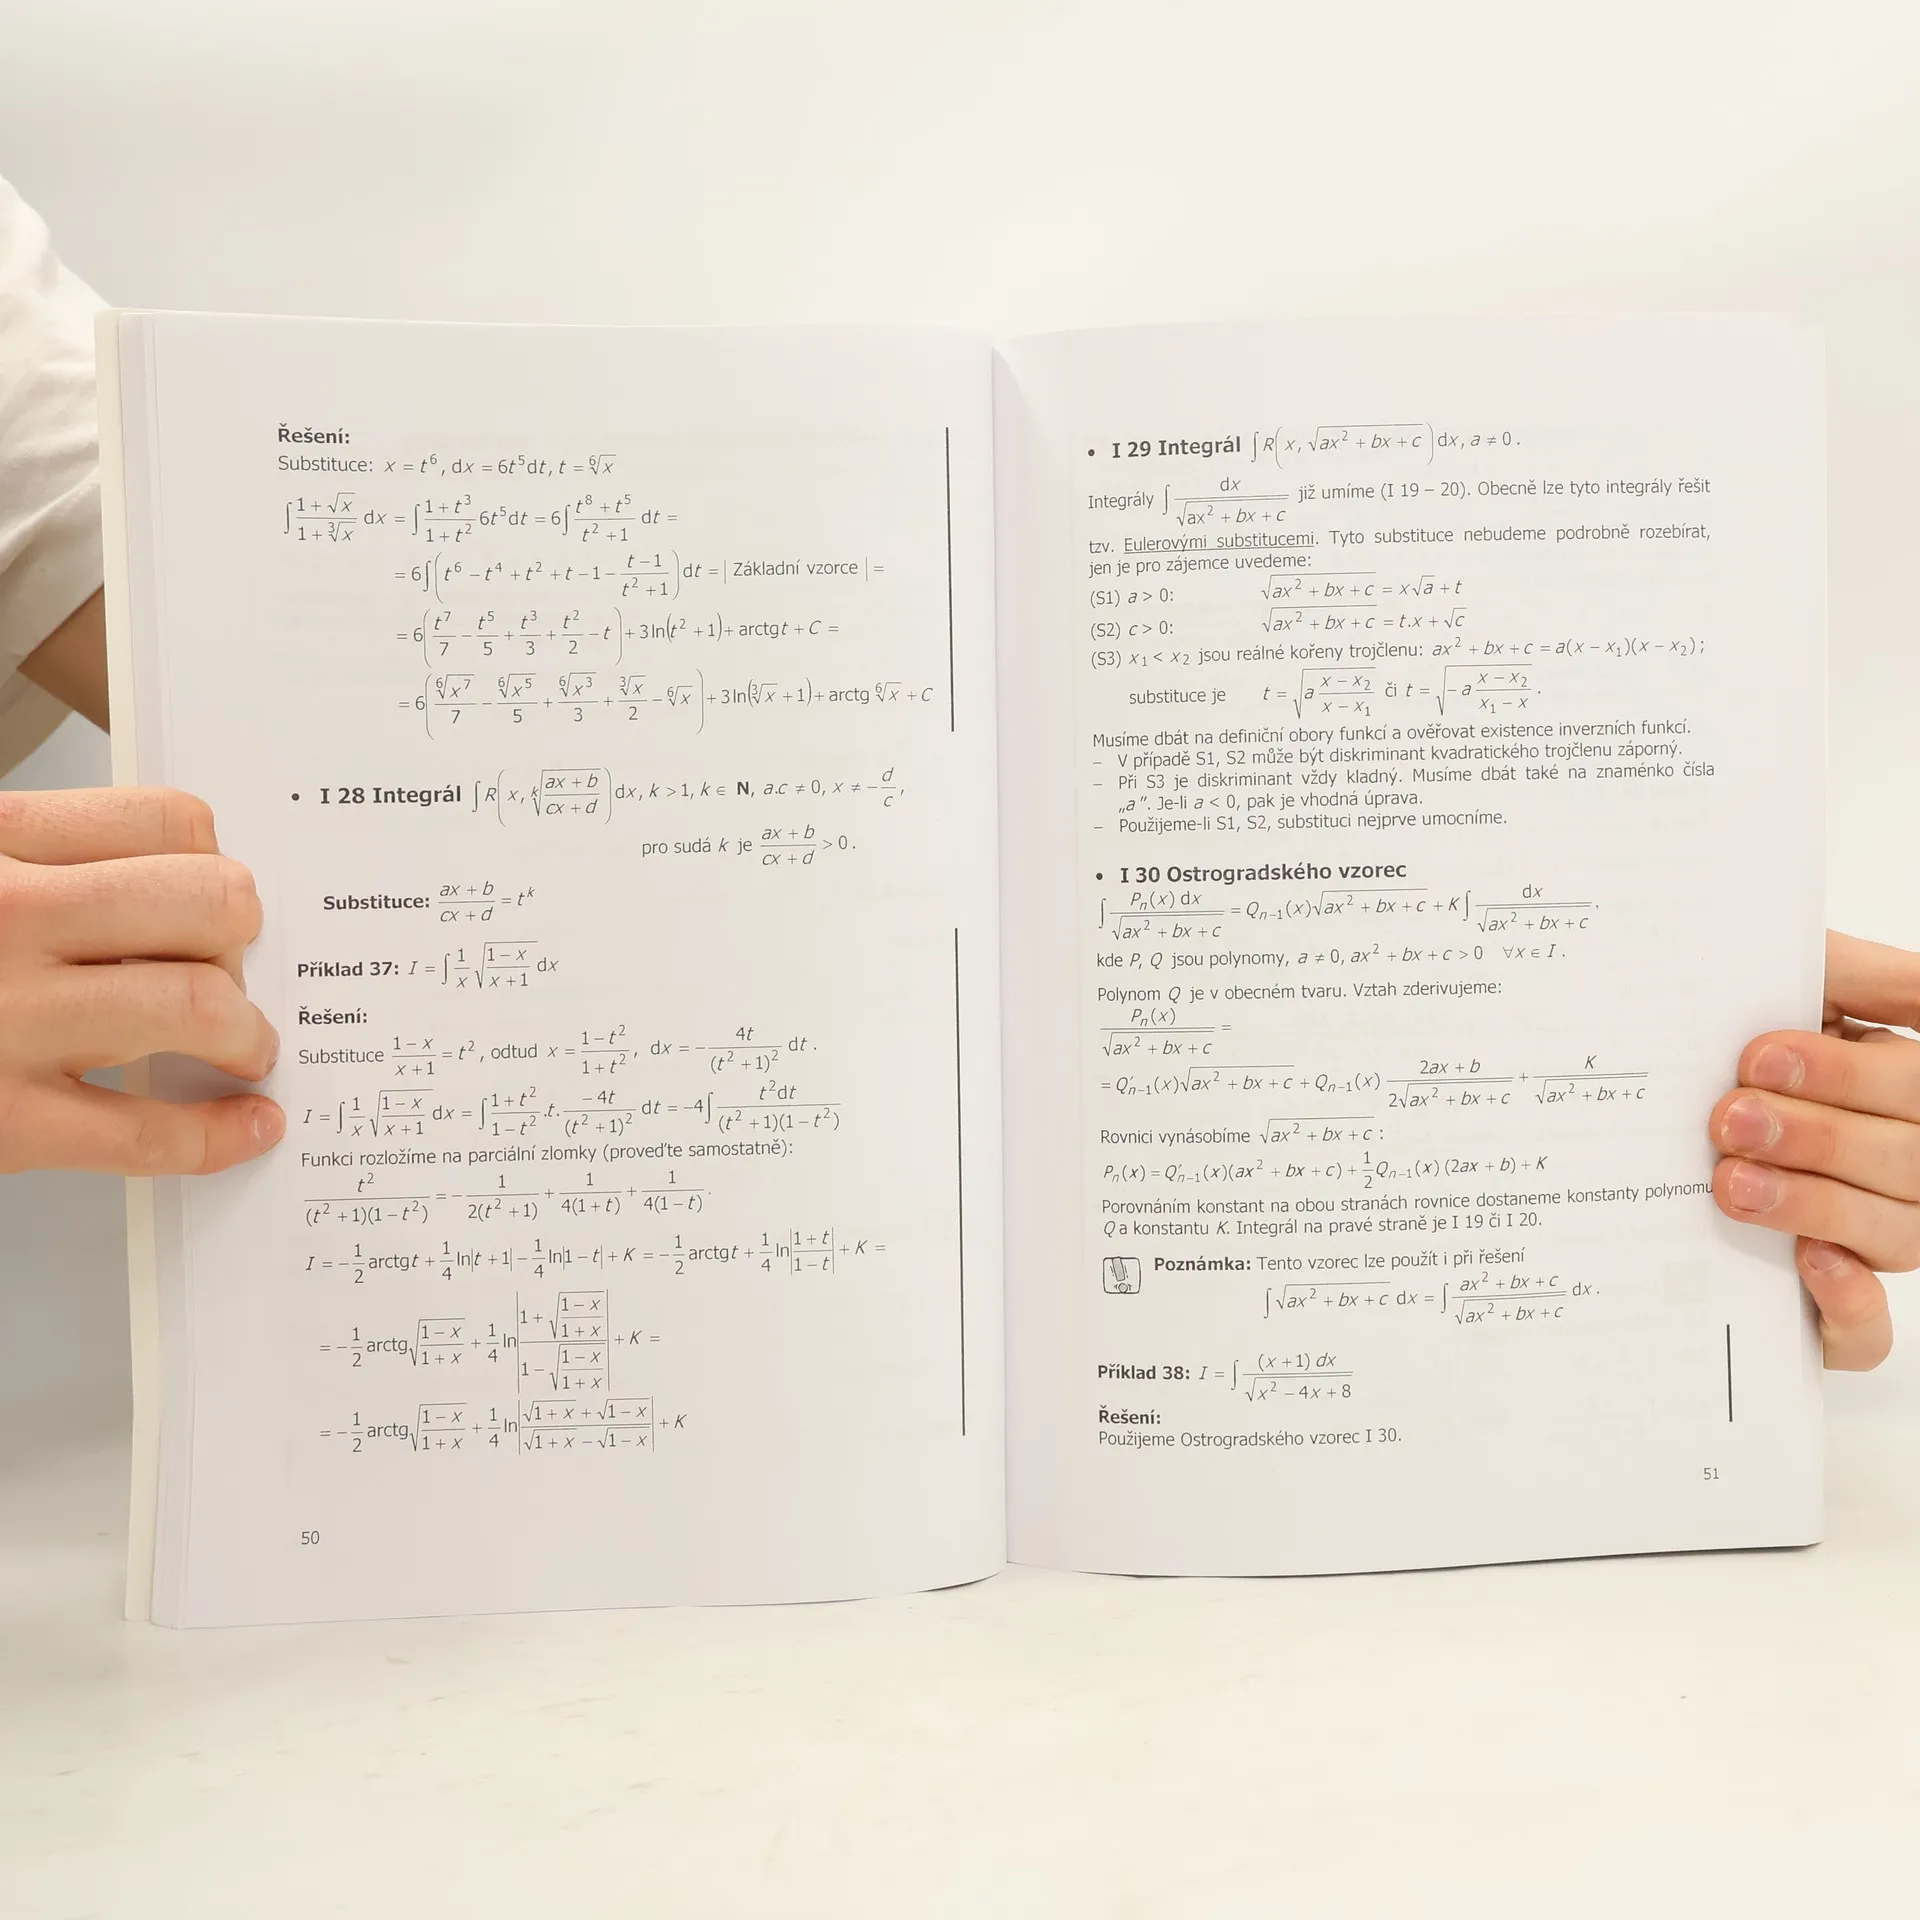 Řešení:
Substituce: x = t⁶, dx = 6t⁵dt, t = ⁶√x
∫ (1 + √x)/(1 + ³√x) dx = ∫ (1 + t³)/(1 + t²) 6t⁵dt = 6∫ (t⁸ + t⁵)/(t² + 1) dt =
= 6∫ (t⁶ − t⁴ + t² + t − 1 − (t − 1)/(t² + 1)) dt = | Základní vzorce | =
= 6(t⁷/7 − t⁵/5 + t³/3 + t²/2 − t) + 3ln(t² + 1) + arctgt + C =
= 6(⁶√x⁷/7 − ⁶√x⁵/5 + ⁶√x³/3 + ³√x/2 − ⁶√x) + 3ln(³√x + 1) + arctg ⁶√x + C
• I 28 Integrál ∫ R(x, ᵏ√((ax + b)/(cx + d))) dx, k > 1, k ∈ N, a.c ≠ 0, x ≠ −d/c,
pro sudá k je (ax + b)/(cx + d) > 0.
Substituce: (ax + b)/(cx + d) = tᵏ
Příklad 37: I = ∫ 1/x √((1 − x)/(x + 1)) dx
Řešení:
Substituce (1 − x)/(x + 1) = t², odtud x = (1 − t²)/(1 + t²), dx = − 4t/(t² + 1)² dt.
I = ∫ 1/x √((1 − x)/(x + 1)) dx = ∫ (1 + t²)/(1 − t²) .t. (− 4t)/(t² + 1)² dt = −4∫ t²dt/((t² + 1)(1 − t²))
Funkci rozložíme na parciální zlomky (proveďte samostatně):
t²/((t² + 1)(1 − t²)) = − 1/(2(t² + 1)) + 1/(4(1 + t)) + 1/(4(1 − t)).
I = −1/2 arctgt + 1/4 ln|t + 1| − 1/4 ln|1 − t| + K = −1/2 arctgt + 1/4 ln|(1 + t)/(1 − t)| + K =
= −1/2 arctg√((1 − x)/(1 + x)) + 1/4 ln|(1 + √((1 − x)/(1 + x)))/(1 − √((1 − x)/(1 + x)))| + K =
= −1/2 arctg√((1 − x)/(1 + x)) + 1/4 ln|(√(1 + x) + √(1 − x))/(√(1 + x) − √(1 − x))| + K
50
• I 29 Integrál ∫ R(x, √(ax² + bx + c)) dx, a ≠ 0.
Integrály ∫ dx/√(ax² + bx + c) již umíme (I 19 – 20). Obecně lze tyto integrály řešit
tzv. Eulerovými substitucemi. Tyto substituce nebudeme podrobně rozebírat,
jen je pro zájemce uvedeme:
(S1) a > 0: √(ax² + bx + c) = x√a + t
(S2) c > 0: √(ax² + bx + c) = t.x + √c
(S3) x₁ < x₂ jsou reálné kořeny trojčlenu: ax² + bx + c = a(x − x₁)(x − x₂);
substituce je t = √(a (x − x₂)/(x − x₁)) či t = √(−a (x − x₂)/(x₁ − x)).
Musíme dbát na definiční obory funkcí a ověřovat existence inverzních funkcí.
– V případě S1, S2 může být diskriminant kvadratického trojčlenu záporný.
– Při S3 je diskriminant vždy kladný. Musíme dbát také na znaménko čísla
„a ". Je-li a < 0, pak je vhodná úprava.
– Použijeme-li S1, S2, substituci nejprve umocníme.
• I 30 Ostrogradského vzorec
∫ Pₙ(x) dx/√(ax² + bx + c) = Qₙ₋₁(x)√(ax² + bx + c) + K∫ dx/√(ax² + bx + c),
kde P, Q jsou polynomy, a ≠ 0, ax² + bx + c > 0 ∀x ∈ I.
Polynom Q je v obecném tvaru. Vztah zderivujeme:
Pₙ(x)/√(ax² + bx + c) =
= Q′ₙ₋₁(x)√(ax² + bx + c) + Qₙ₋₁(x) (2ax + b)/(2√(ax² + bx + c)) + K/√(ax² + bx + c)
Rovnici vynásobíme √(ax² + bx + c) :
Pₙ(x) = Q′ₙ₋₁(x)(ax² + bx + c) + 1/2 Qₙ₋₁(x) (2ax + b) + K
Porovnáním konstant na obou stranách rovnice dostaneme konstanty polynomu
Q a konstantu K. Integrál na pravé straně je I 19 či I 20.
Poznámka: Tento vzorec lze použít i při řešení
∫ √(ax² + bx + c) dx = ∫ (ax² + bx + c)/√(ax² + bx + c) dx.
Příklad 38: I = ∫ (x + 1) dx/√(x² − 4x + 8)
Řešení:
Použijeme Ostrogradského vzorec I 30.
51